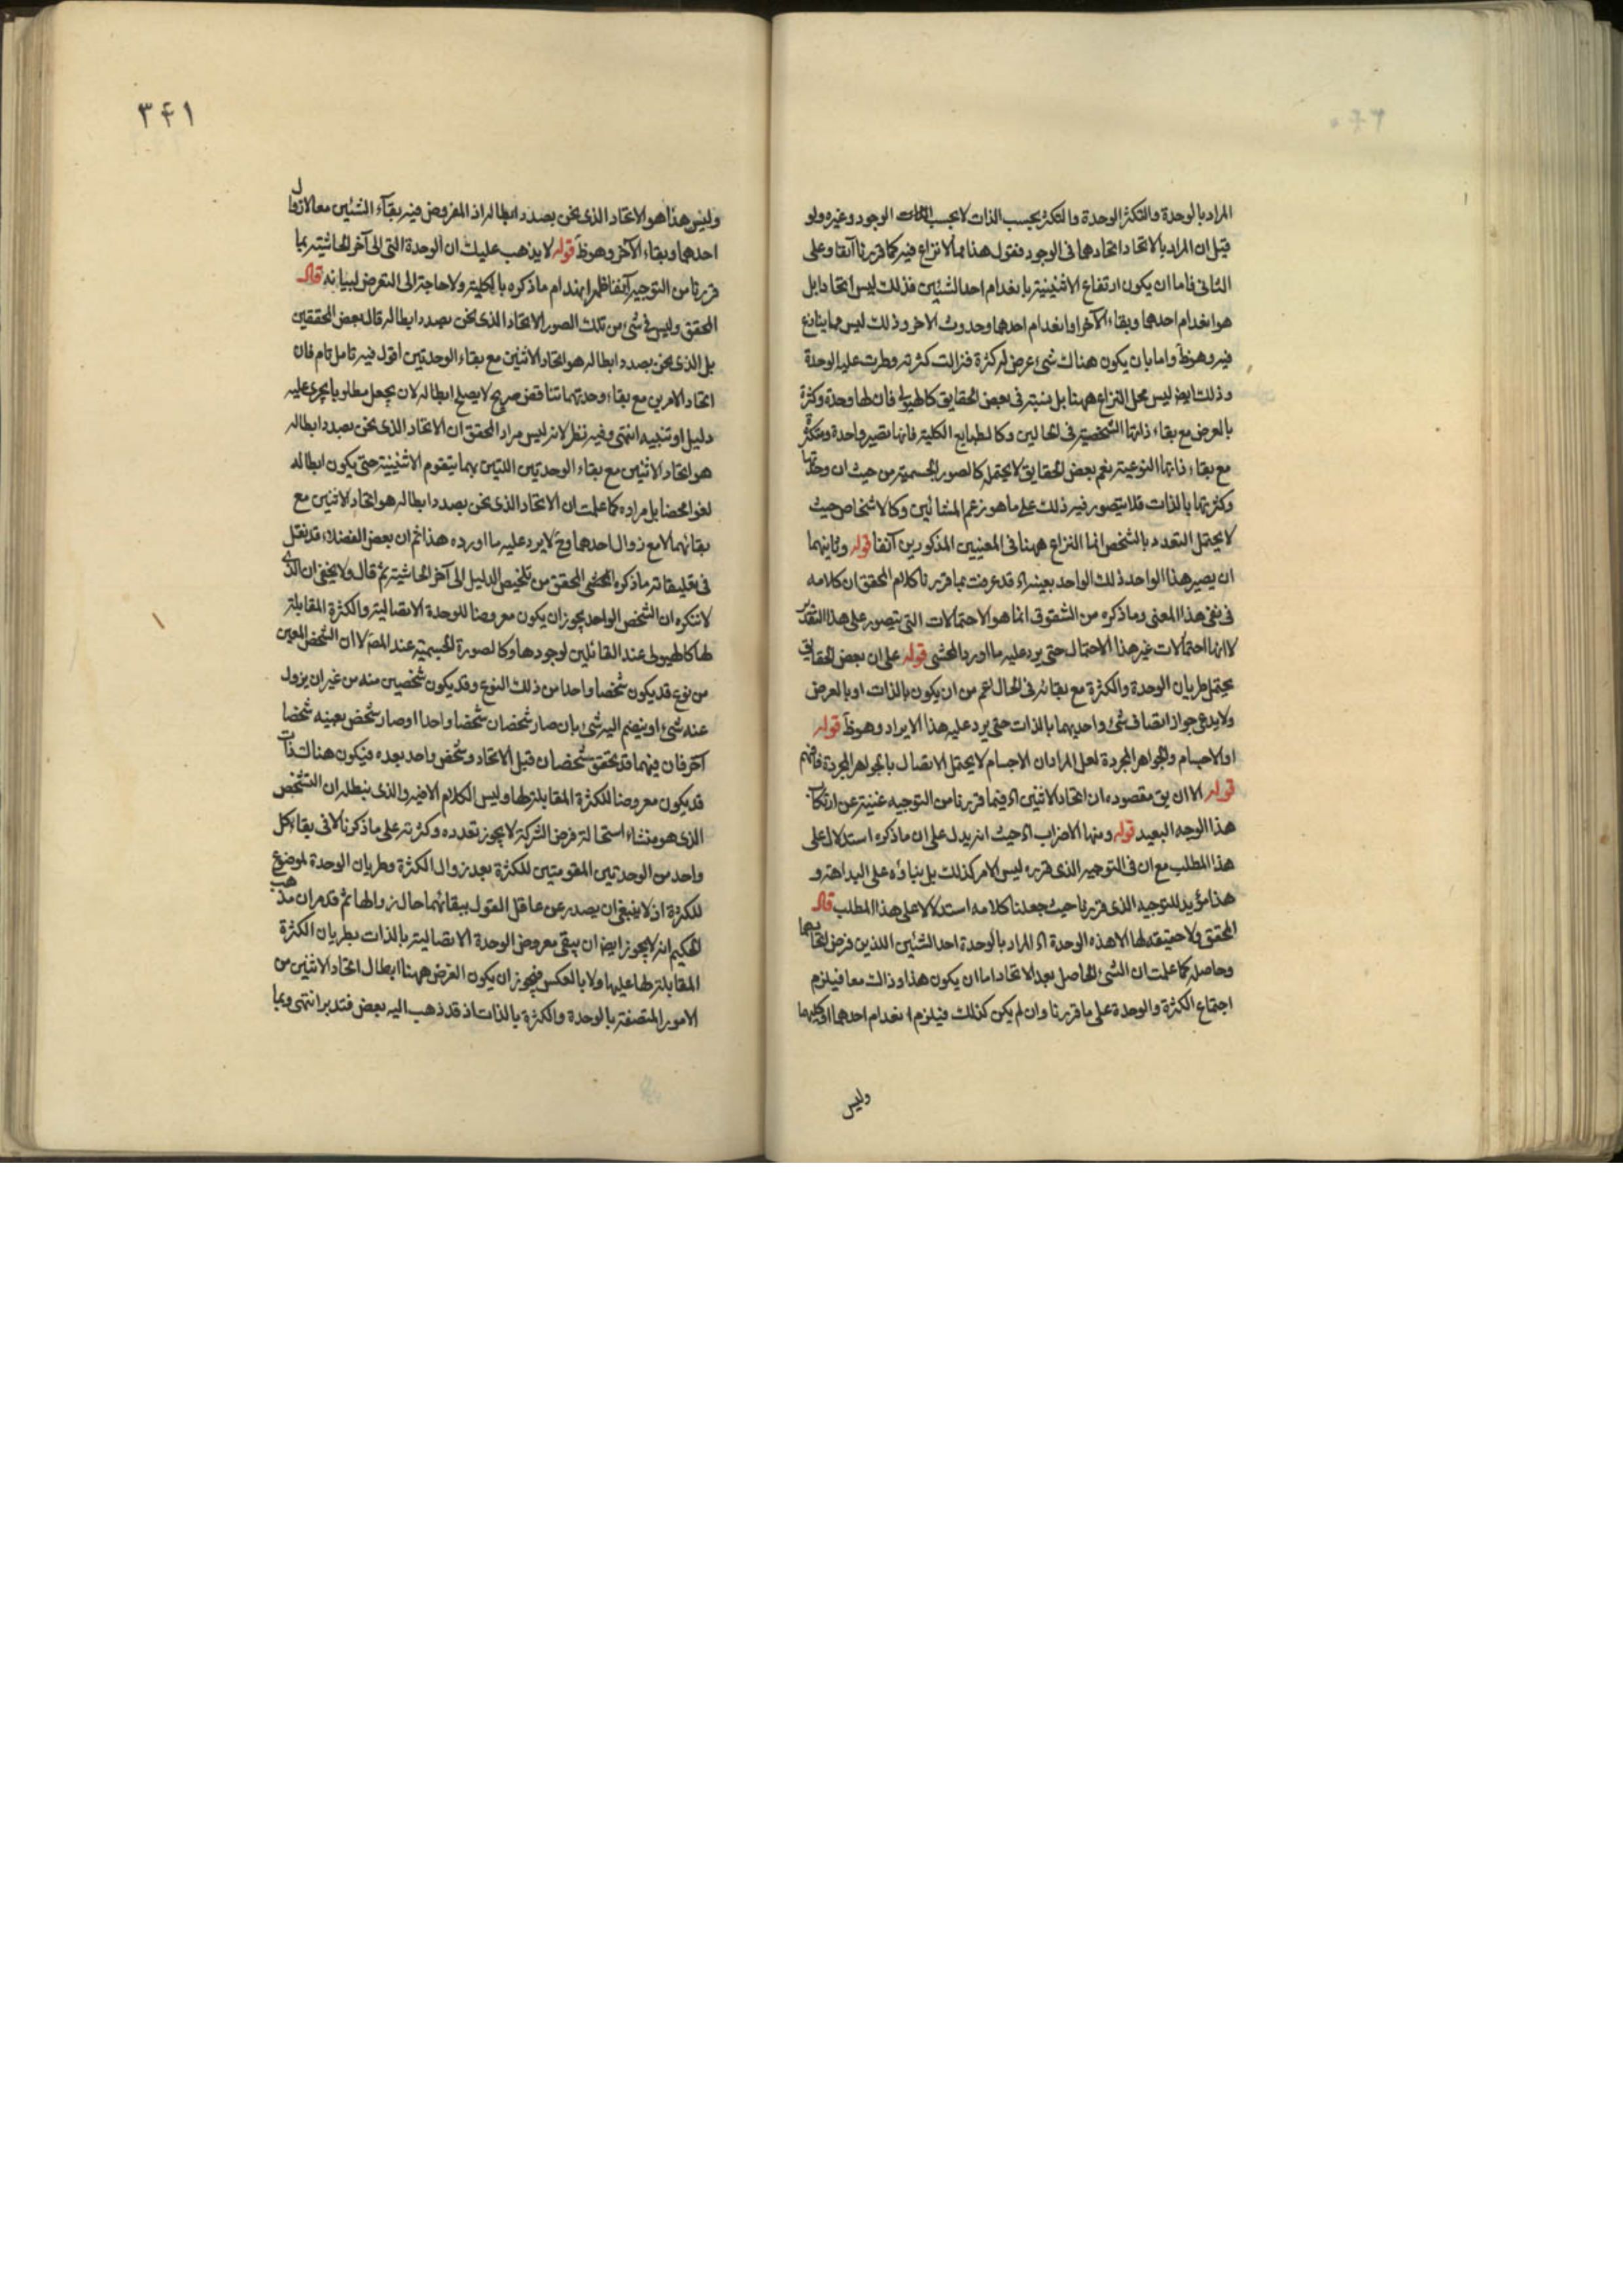 المراد بالوحدة والتكثر الوحدة والتكثر بحسب الذات لا بحسب الوجود وغيره ولو
قيل ان المراد بالاتحاد اتحادهما فى الوجود فنقول هذا مما لا نزاع فيه كما قررنا آنفا وعلى
الثانى فاما ان يكون ارتفاع الاثنينية بانعدام احد الشيئين فذلك ليس اتحادا بل
هو انعدام احدهما وبقاء الآخر او انعدام احدهما وحدوث الاخر وذلك ليس مما ينازع
فيه وهو ظ واما بان يكون هناك شئ عرض له كثرة فزالت كثرته وطرت عليه الوحدة
وذلك ايض ليس محل النزاع ههنا بل نثبته فى بعض الحقايق كالهيولى فان لها وحدة وكثرة
بالعرض مع بقاء ذاتها الشخصية فى الحالين وكالطبايع الكلية فانها تصير واحدة ومتكثرة
مع بقاء ذاتها النوعية نعم بعض الحقايق لا يحتمله كالصور الجسمية من حيث ان وحدتها
وكثرتها بالذات فلا يتصور فيه ذلك على ما هو زعم المشائين وكالاشخاص حيث
لا يحتمل التعدد بالشخص انما النزاع ههنا فى المعنيين المذكورين آنفا قوله وثانيهما
ان يصير هذا الواحد ذلك الواحد بعينه اه قد عرفت بما قررنا كلام المحقق ان كلامه
فى نفى هذا المعنى وما ذكره من الشقوق انما هو الاحتمالات التى يتصور على هذا التقدير
لا انها احتمالات غير هذا الاحتمال حتى يرد عليه ما اورد المحشى قوله على ان بعض الحقايق
يحتمل طريان الوحدة والكثرة مع بقائه فى الحال اعم من ان يكون بالذات او بالعرض
ولا يدعى جواز اتصاف شئ واحد بهما بالذات حتى يرد عليه هذا الايراد وهو ظ قوله
او الاجسام والجواهر المجردة لعل المراد ان الاجسام لا يحتمل الاتصال بالجواهر المجردة فافهم
قوله الا ان يق مقصوده ان اتحاد الاثنين اه فيما قررنا من التوجيه غنية عن ارتكاب
هذا الوجه البعيد قوله ومنها الاضراب اه حيث انه يدل على ان ما ذكره استدلال على
هذا المطلب مع ان فى التوجيه الذى قرره ليس الامر كذلك بل بناؤه على البداهة و
هذا مؤيد للتوجيه الذى قررنا حيث جعلنا كلامه استدلالا على هذا المطلب قال
المحقق ولا حقيقة لها الا هذه الوحدة اه المراد بالوحدة احد الشيئين اللذين فرض اتحادهما
وحاصله كما علمت ان الشئ الحاصل بعد الاتحاد اما ان يكون هذا وذاك معا فيلزم
اجتماع الكثرة والوحدة على ما قررنا وان لم يكن كذلك فيلزم انعدام احدهما او كليهما
وليس
٣٤١
وليس هذا هو الاتحاد الذى نحن بصدد ابطاله اذ المفروض فيه بقاء الشيئين معا لا زوال
احدهما وبقاء الآخر وهو ظ قوله لا يذهب عليك ان الوحدة التى الى آخر الحاشية بما
قررنا من التوجيه آنفا ظهر انهدام ما ذكره بالكلية ولا حاجة الى التعرض لبيانه قال
المحقق وليس فى شئ من تلك الصور الاتحاد الذى نحن بصدد ابطاله قال بعض المحققين
بل الذى نحن بصدد ابطاله هو اتحاد الاثنين مع بقاء الوحدتين اقول فيه تامل تام فان
اتحاد الامرين مع بقاء وحدتهما تناقض صريح لا يصلح ابطاله لان يجعل مطلوبا يجرى عليه
دليل او تنبيه انتهى وفيه نظر لانه ليس مراد المحقق ان الاتحاد الذى نحن بصدد ابطاله
هو اتحاد الاثنين مع بقاء الوحدتين اللتين بهما يتقوم الاثنينية حتى يكون ابطاله
لغوا محضا بل مراده كما علمت ان الاتحاد الذى نحن بصدد ابطاله هو اتحاد الاثنين مع
بقائهما لا مع زوال احدهما وح لا يرد عليه ما اورده هذا ثم ان بعض الفضلاء قد نقل
فى تعليقاته ما ذكره المحشى المحقق من تلخيص الدليل الى آخر الحاشية ثم قال ولا يخفى ان الذى
لا ننكره ان الشخص الواحد يجوز ان يكون معروضا للوحدة الاتصالية والكثرة المقابلة
لها كالهيولى عند القائلين لوجودها وكالصورة الجسمية عند المص لا ان الشخص المعين
من نوع قد يكون شخصا واحدا من ذلك النوع وقد يكون شخصين منه من غير ان يزول
عنه شئ او ينضم اليه شئ بان صار شخصان شخصا واحدا او صار شخص بعينه شخصا
آخر فان فيهما قد تحقق شخصان قبل الاتحاد وشخص واحد بعده فيكون هناك ذات
قد يكون معروضا للكثرة المقابلة لها وليس الكلام الا فيه والذى نبطله ان التشخص
الذى هو منشاء استحالة فرض الشركة لا يجوز تعدده وكثرته على ما ذكرنا لا فى بقاء كل
واحد من الوحدتين المقومتين للكثرة بعد زوال الكثرة وطريان الوحدة لموضوع
للكثرة اذ لا ينبغى ان يصدر عن عاقل القول ببقائهما حال زوالها ثم قد مر ان مذهب
الحكيم انه لا يجوز ايض ان يبقى معروض الوحدة الاتصالية بالذات بطريان الكثرة
المقابلة لها عليها ولا بالعكس فيجوز ان يكون الغرض ههنا ابطال اتحاد الاثنين من
الامور المتصفة بالوحدة والكثرة بالذات اذ قد ذهب اليه بعض فتدبر انتهى وبما